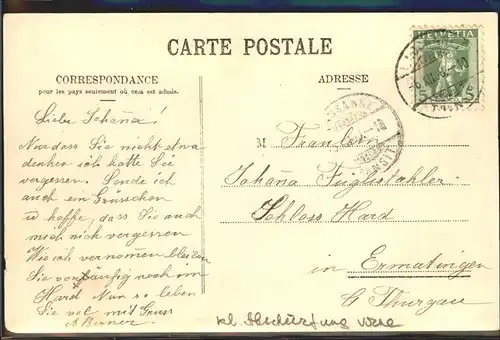 CARTE POSTALE
CORRESPONDANCE
pour les pays seulement où cela est admis.
Liebe Johãna!
Nur dass Sie nicht etwa
denken ich hatte Sie
vergessen. Sende ich
auch ein Grüschen
u hoffe, dass Sie auch
mich nich vergessen
Wie ich vernomen bleiben
Sie vorläufig noch im
Hard Nun so leben
Sie wol mit Gruss
A Berner
ADRESSE
HELVETIA
5 5
M Fraulein
Johãna
Schloss Hard
in Ermatingen
Ct Thurgau
kl. Abschürfung vorne